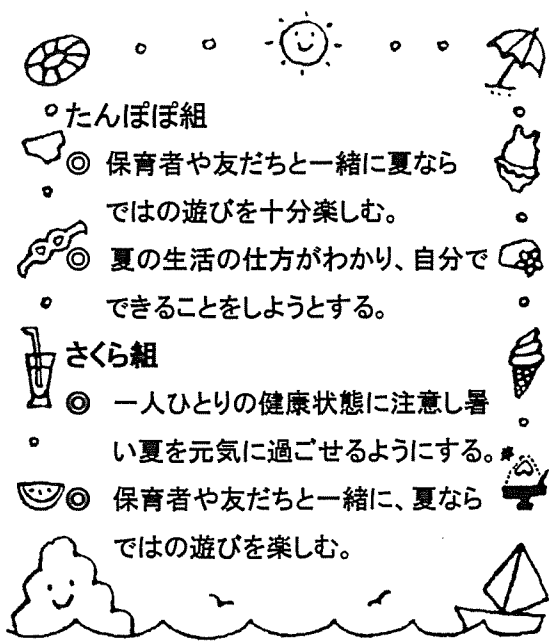 たんぽぽ組
◎ 保育者や友だちと一緒に夏なら
ではの遊びを十分楽しむ。
◎ 夏の生活の仕方がわかり、自分で
できることをしようとする。
さくら組
◎ 一人ひとりの健康状態に注意し暑
い夏を元気に過ごせるようにする。
◎ 保育者や友だちと一緒に、夏なら
ではの遊びを楽しむ。